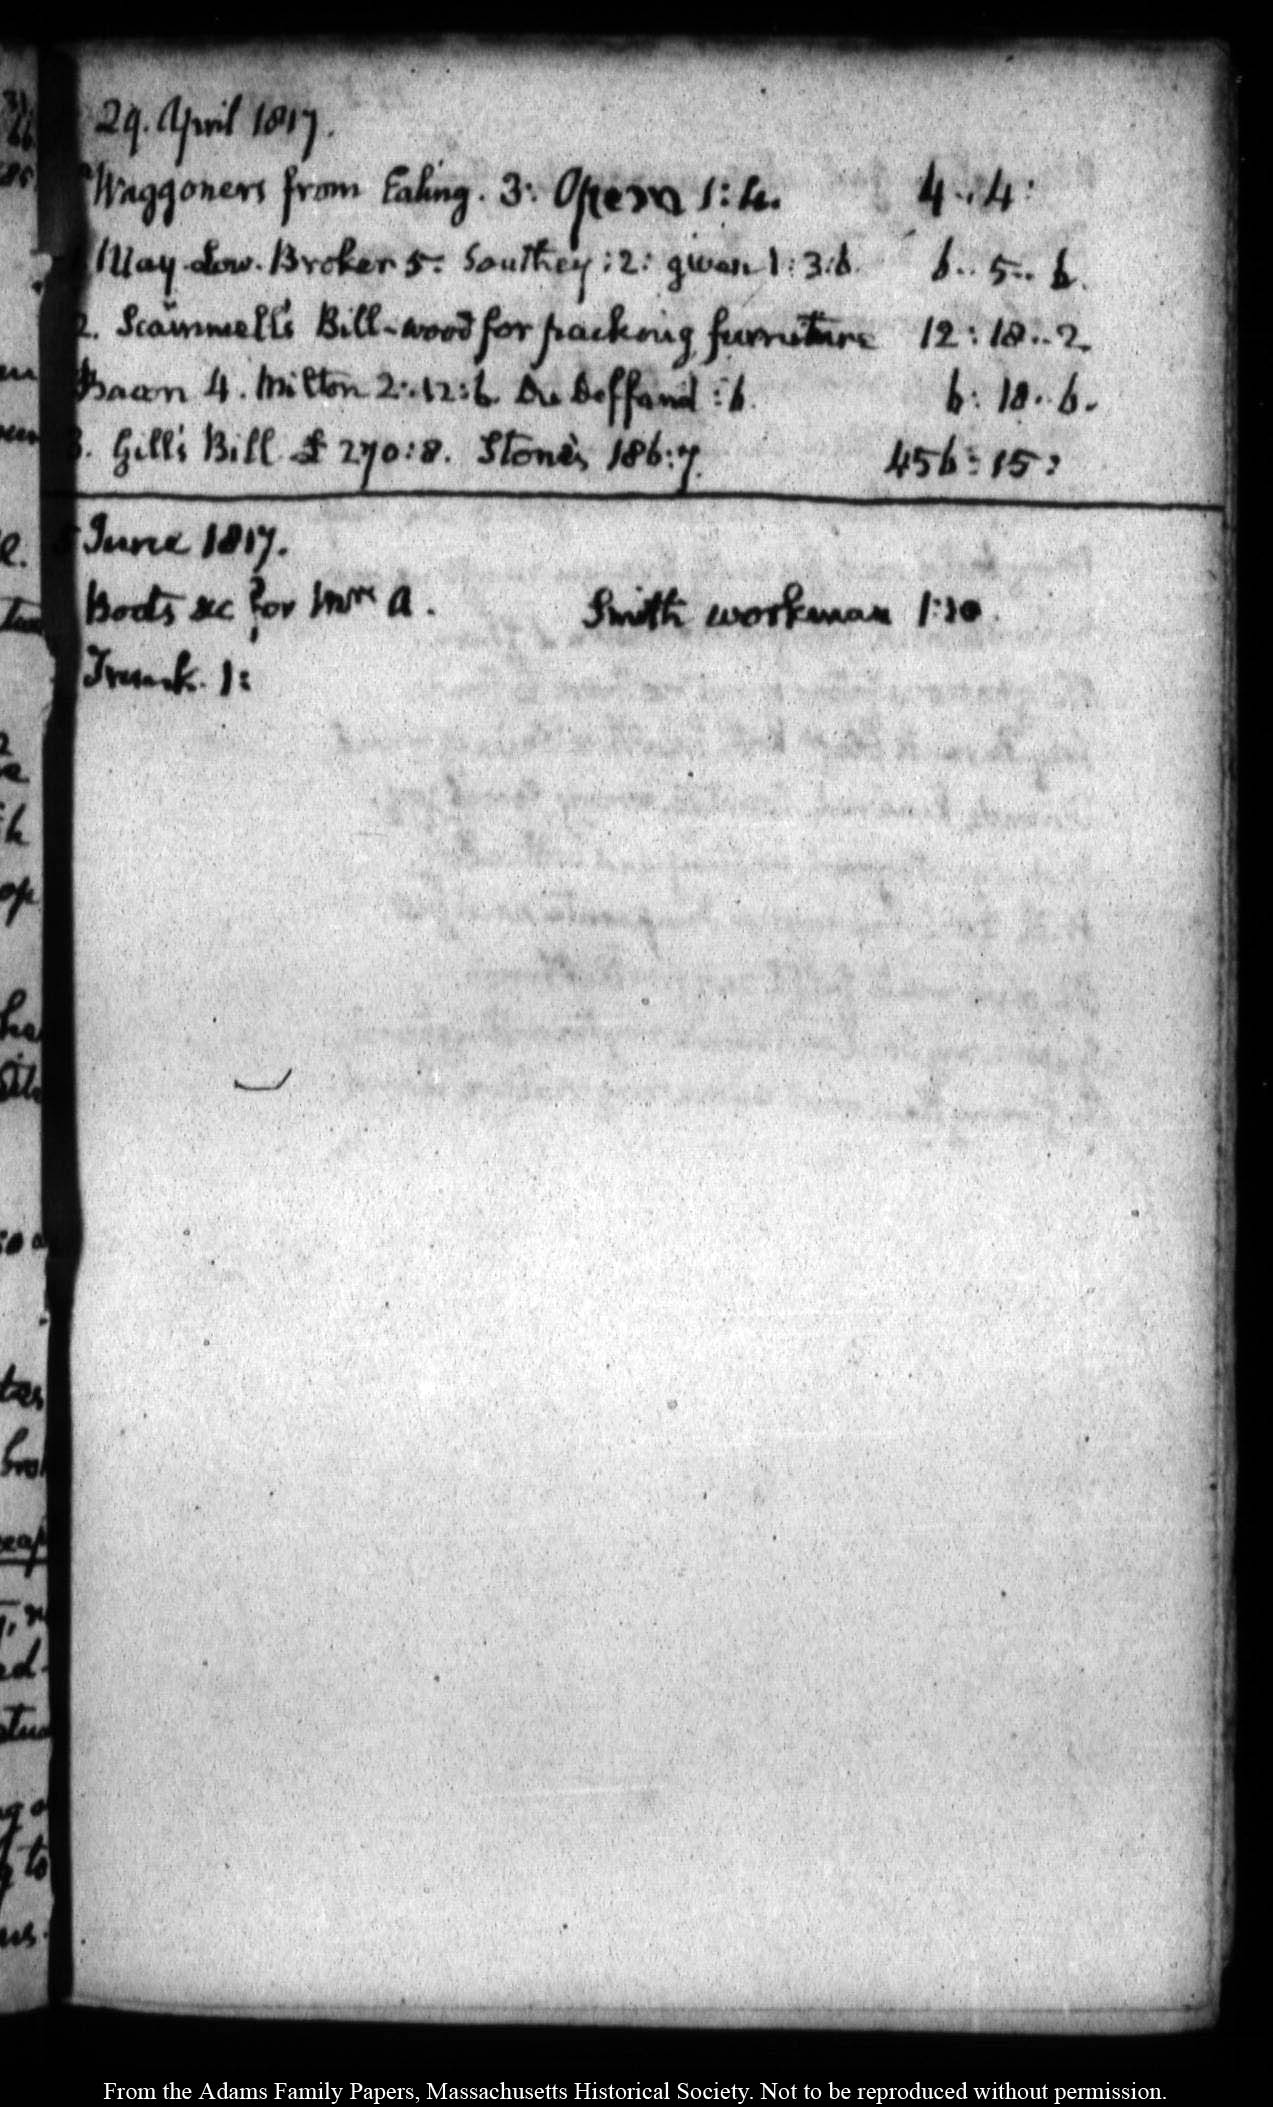 29. April 1817.
Waggoners from Ealing. 3: Opera 1:4. 4..4:
May. Low. Broker 5: Southey :2: given 1:3:6. 6..5..6.
2. Scammell's Bill-wood for packing furniture 12:18..2.
Bacon 4. Milton 2:.12:6. Du Deffand :6. 6:18..6.
3. Gill's Bill £270:8. Stone's 186:7. 456:15:
5 June 1817.
Boots &c for Mrs A. Smith workman 1:10.
Trunk. 1:
From the Adams Family Papers, Massachusetts Historical Society. Not to be reproduced without permission.